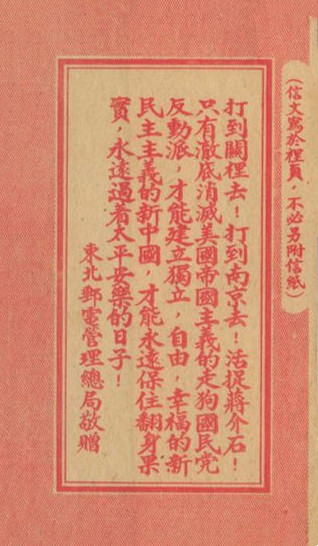 (信文寫於裡頁，不必另附信紙)
打到關裡去！打到南京去！活捉蔣介石！
只有澈底消滅美國帝國主義的走狗國民党
反動派，才能建立獨立，自由，幸福的新
民主主義的新中國，才能永遠保住翻身果
實，永遠過着太平安樂的日子！
東北郵電管理總局敬贈